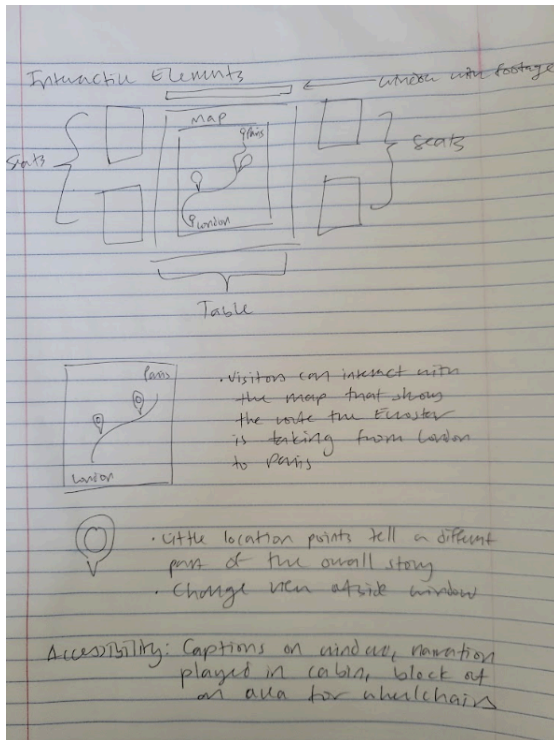 Interactive Elements
window with footage
map
Paris
seats
seats
London
Table
Paris
London
• Visitors can interact with
the map that shows
the route the Eurostar
is taking from London
to Paris
• Little location points tell a different
part of the overall story
• Change view outside window
Accessibility: Captions on window, narration
played in cabin, block out
an area for wheelchairs